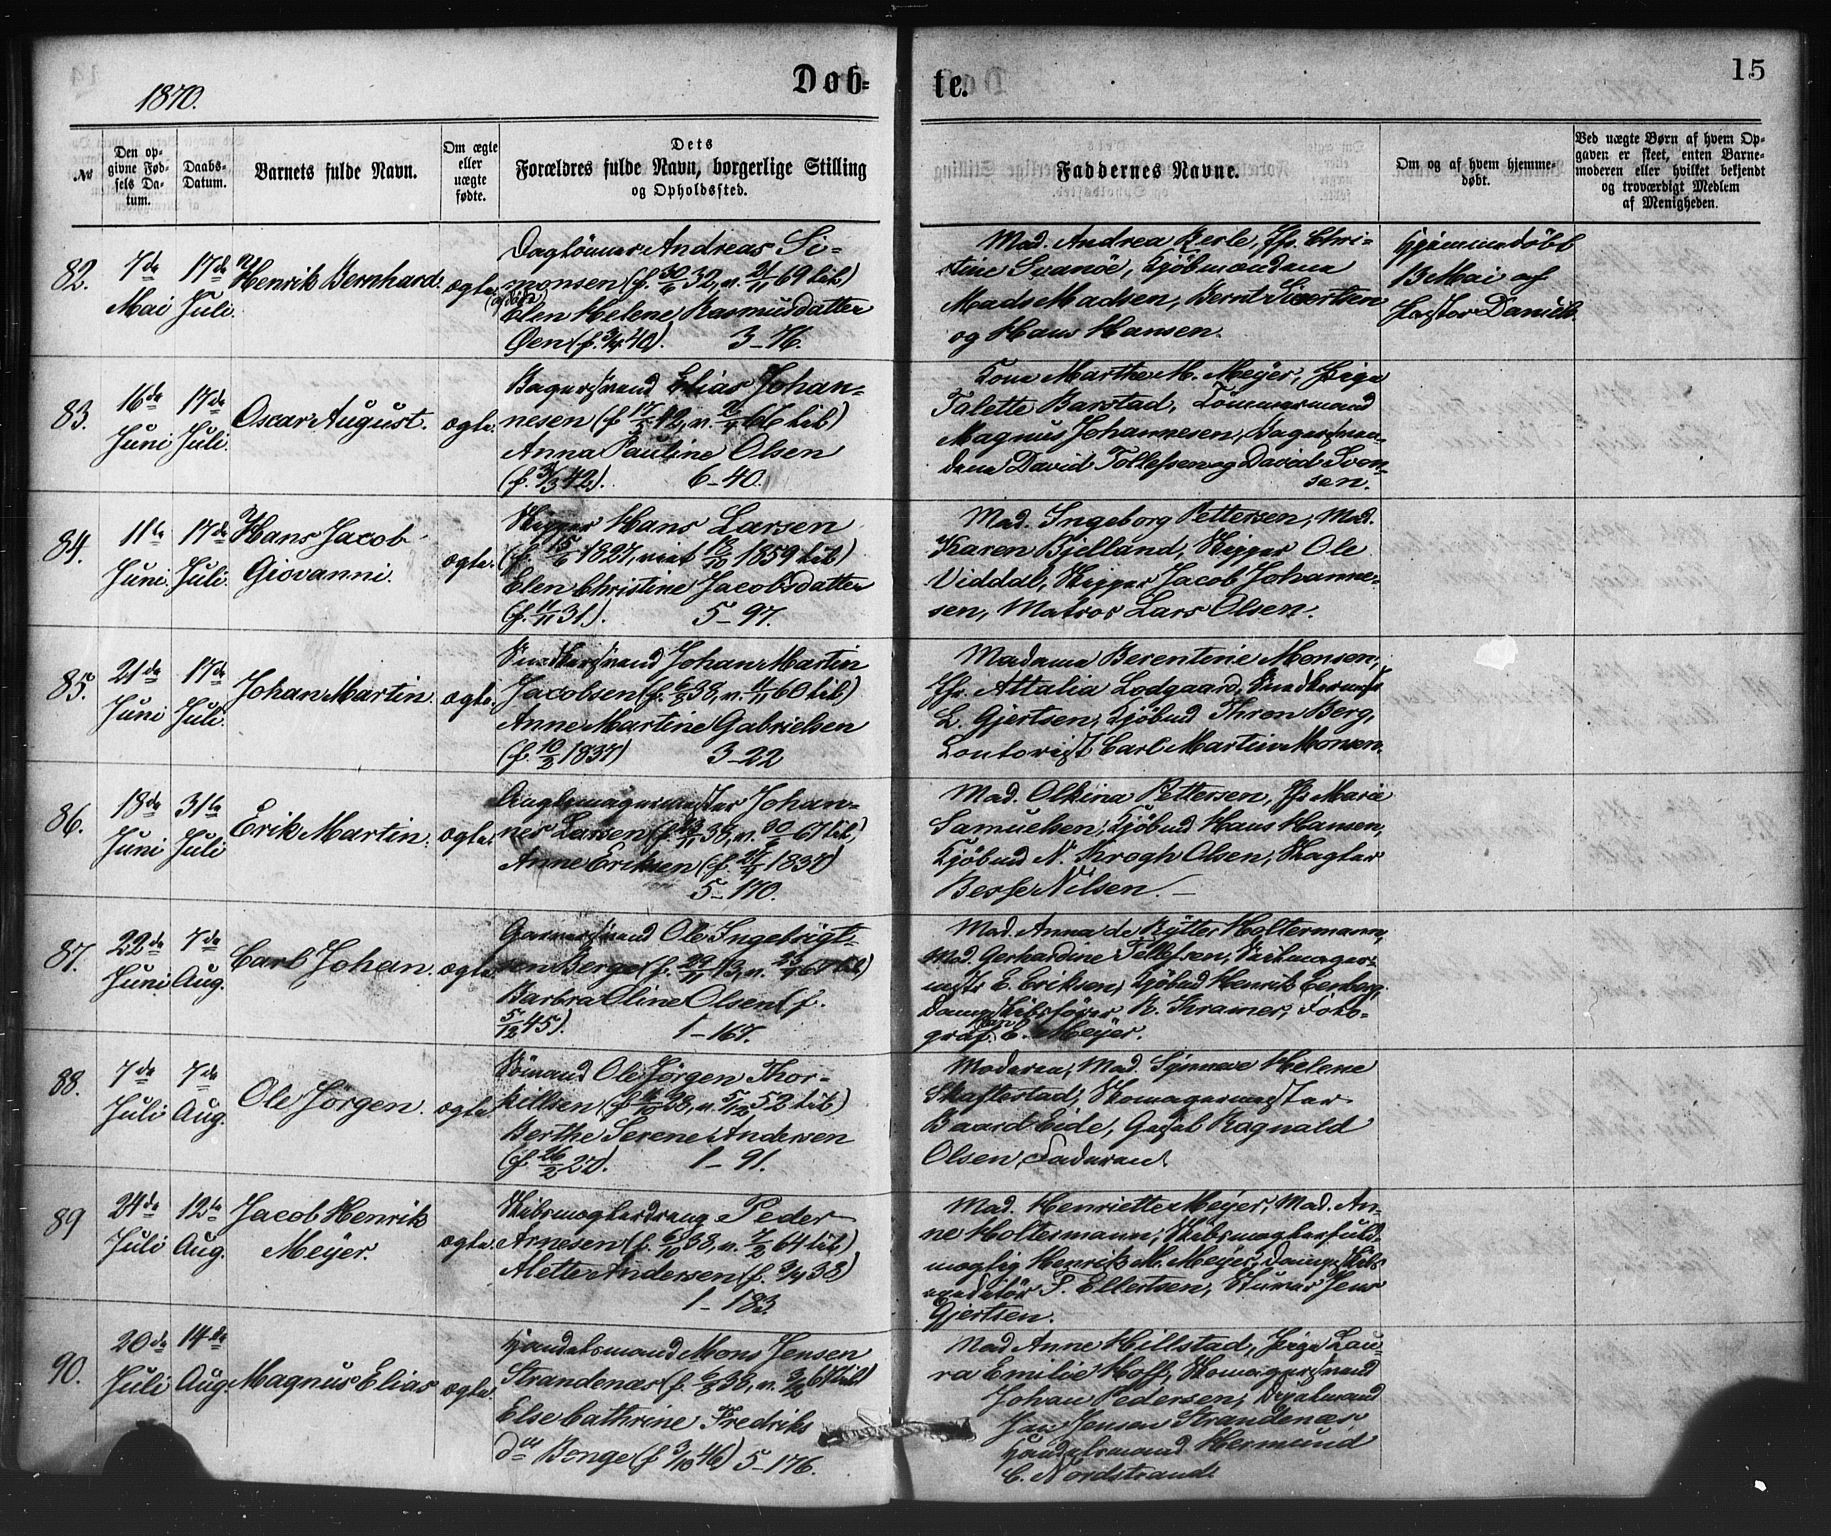 1870.
Døb-
te.
15
№
Den op-
givne Fød-
sels Da-
tum.
Daabs-
Datum.
Barnets fulde Navn.
Om ægte
eller
uægte
fødte.
Dets
Forældres fulde Navn, borgerlige Stilling
og Opholdssted.
Faddernes Navne.
Om og af hvem hjemme-
døbt.
Ved uægte Børn af hvem Op-
gaven er skeet, enten Barne-
moderen eller hvilket bekjendt
og troværdigt Medlem
af Menigheden.
82.
7de
Mai
17de
Juli.
Henrik Bernhard.
ægte.
Daglönner Andreas Si-
monsen (f. 30/6 32, v. 21/11 69 til)
Elen Helene Rasmusdatter
Øen (f. 40). 3-76.
Mad. Andrea Berle, Jfr. Chri-
stine Svanöe, Kjöbmændene
Mads Madsen, Bernt Sivertsen
og Hans Hansen.
Hjemmedöbt
13 Mai af
Pastor Daniels.
83.
16de
Juni
17de
Juli.
Oscar August.
ægte.
Bagersvend Elias Johan-
nesen (f. 17/2 42, v. 66 til)
Anna Pauline Olsen
(f. 3/3 42). 6-40.
Kone Marthe M. Meyer, Pige
Talette Barstad, Tömmermand
Magnus Johannesen, Bagersven-
dene David Tollefsen og David Sven-
sen.
84.
11te
Juni
17de
Juli.
Hans Jacob
Giovanni.
ægte.
Skipper Hans Larsen
(f. 15/6 1827, viet 16/10 1859 til)
Elen Christine Jacobsdatter
(f. 11/11 31). 5-97.
Mad. Ingeborg Pettersen, Mad.
Karen Bjelland, Skipper Ole
Viddal, Skipper Jacob Johanne-
sen, Matros Lars Olsen.
85.
21de
Juni
17de
Juli.
Johan Martin.
ægte.
Snedkersvend Johan Martin
Jacobsen (f. 6/2 38, v. 11/11 60 til)
Anne Martine Gabrielsen
(f. 10/2 1837) 3-22
Madame Berentine Monsen,
Jfr. Attalia Lodgaard, Snedkermstr
L. Gjertsen, Kjöbmd Thron Berg,
Contorist Carl Martin Monsen.
86.
18de
Juni
31te
Juli
Erik Martin.
ægte.
Johan-
nes Larsen (f. 23/11 38, v. 30/6 67 til)
Anne Eriksen (f. 27/4 1837)
5-170.
Mad. Olkina Pettersen, Jfr. Marie
Samuelsen, Kjöbmd Hans Hansen,
Kjöbmd N. Krogh Olsen, Slagter
Berge Nilsen.
87.
22de
Juni
7de
Aug.
Carl Johan.
ægte.
Garversvend Ole Ingebrigt-
sen Berge (f. 29/11 43, v. 67 til)
Barbra Oline Olsen (f.
5/12 45). 1-167.
Mad. Anna de Rytter Holtermann,
Mad. Gerhardine Tellefsen,
mstr E. Eriksen, Kjöbmd Henrik Eenberg,
Dampskibsförer R. Kramer, Foto-
graf C. Meyer.
88.
7de
Juli
7de
Aug.
Ole Jörgen.
ægte.
Sömand Ole Jörgen Thor-
killsen (f. 28, v. 5/12 52 til)
Berthe Serene Andersen
(f. 26/2 27). 1-91.
Moderen, Mad. Synneve Helene
Skaftestad, Skomagermester
Baard Eide, Gesel Ragnald
Olsen, Faderen.
89
24de
Juli
12te
Aug.
Jacob Henrik
Meyer.
ægte.
Skibsmæglerdreng Peder
Arnesen (f. 6/10 38, v. 7/2 64 til)
Alette Andersen (f. 9/4 38)
1-183.
Mad. Henriette Meyer, Mad. An-
ne Holtermann, Skibsmæglerfuld-
mægtig Henrik M. Meyer, Dampskibs-
expeditör P. Ellertsen, Stuer Jens
Gjertsen.
90.
20de
Juli
14de
Aug.
Magnus Elias
ægte.
Handelsmand Mons Jensen
Strandenæs (f. 6/8 38, v. 9/6 67 til)
Else Cathrine Fredriks
dtr Bonge (f. 3/10 46) 5-176.
Mad. Anne Hillstad, Pige Lau-
ra Emilie Hoff, Skomagersvend
Johan Pedersen,
Jensen Strandenæs
Handelsmand Hermund
C. Nordstrand.